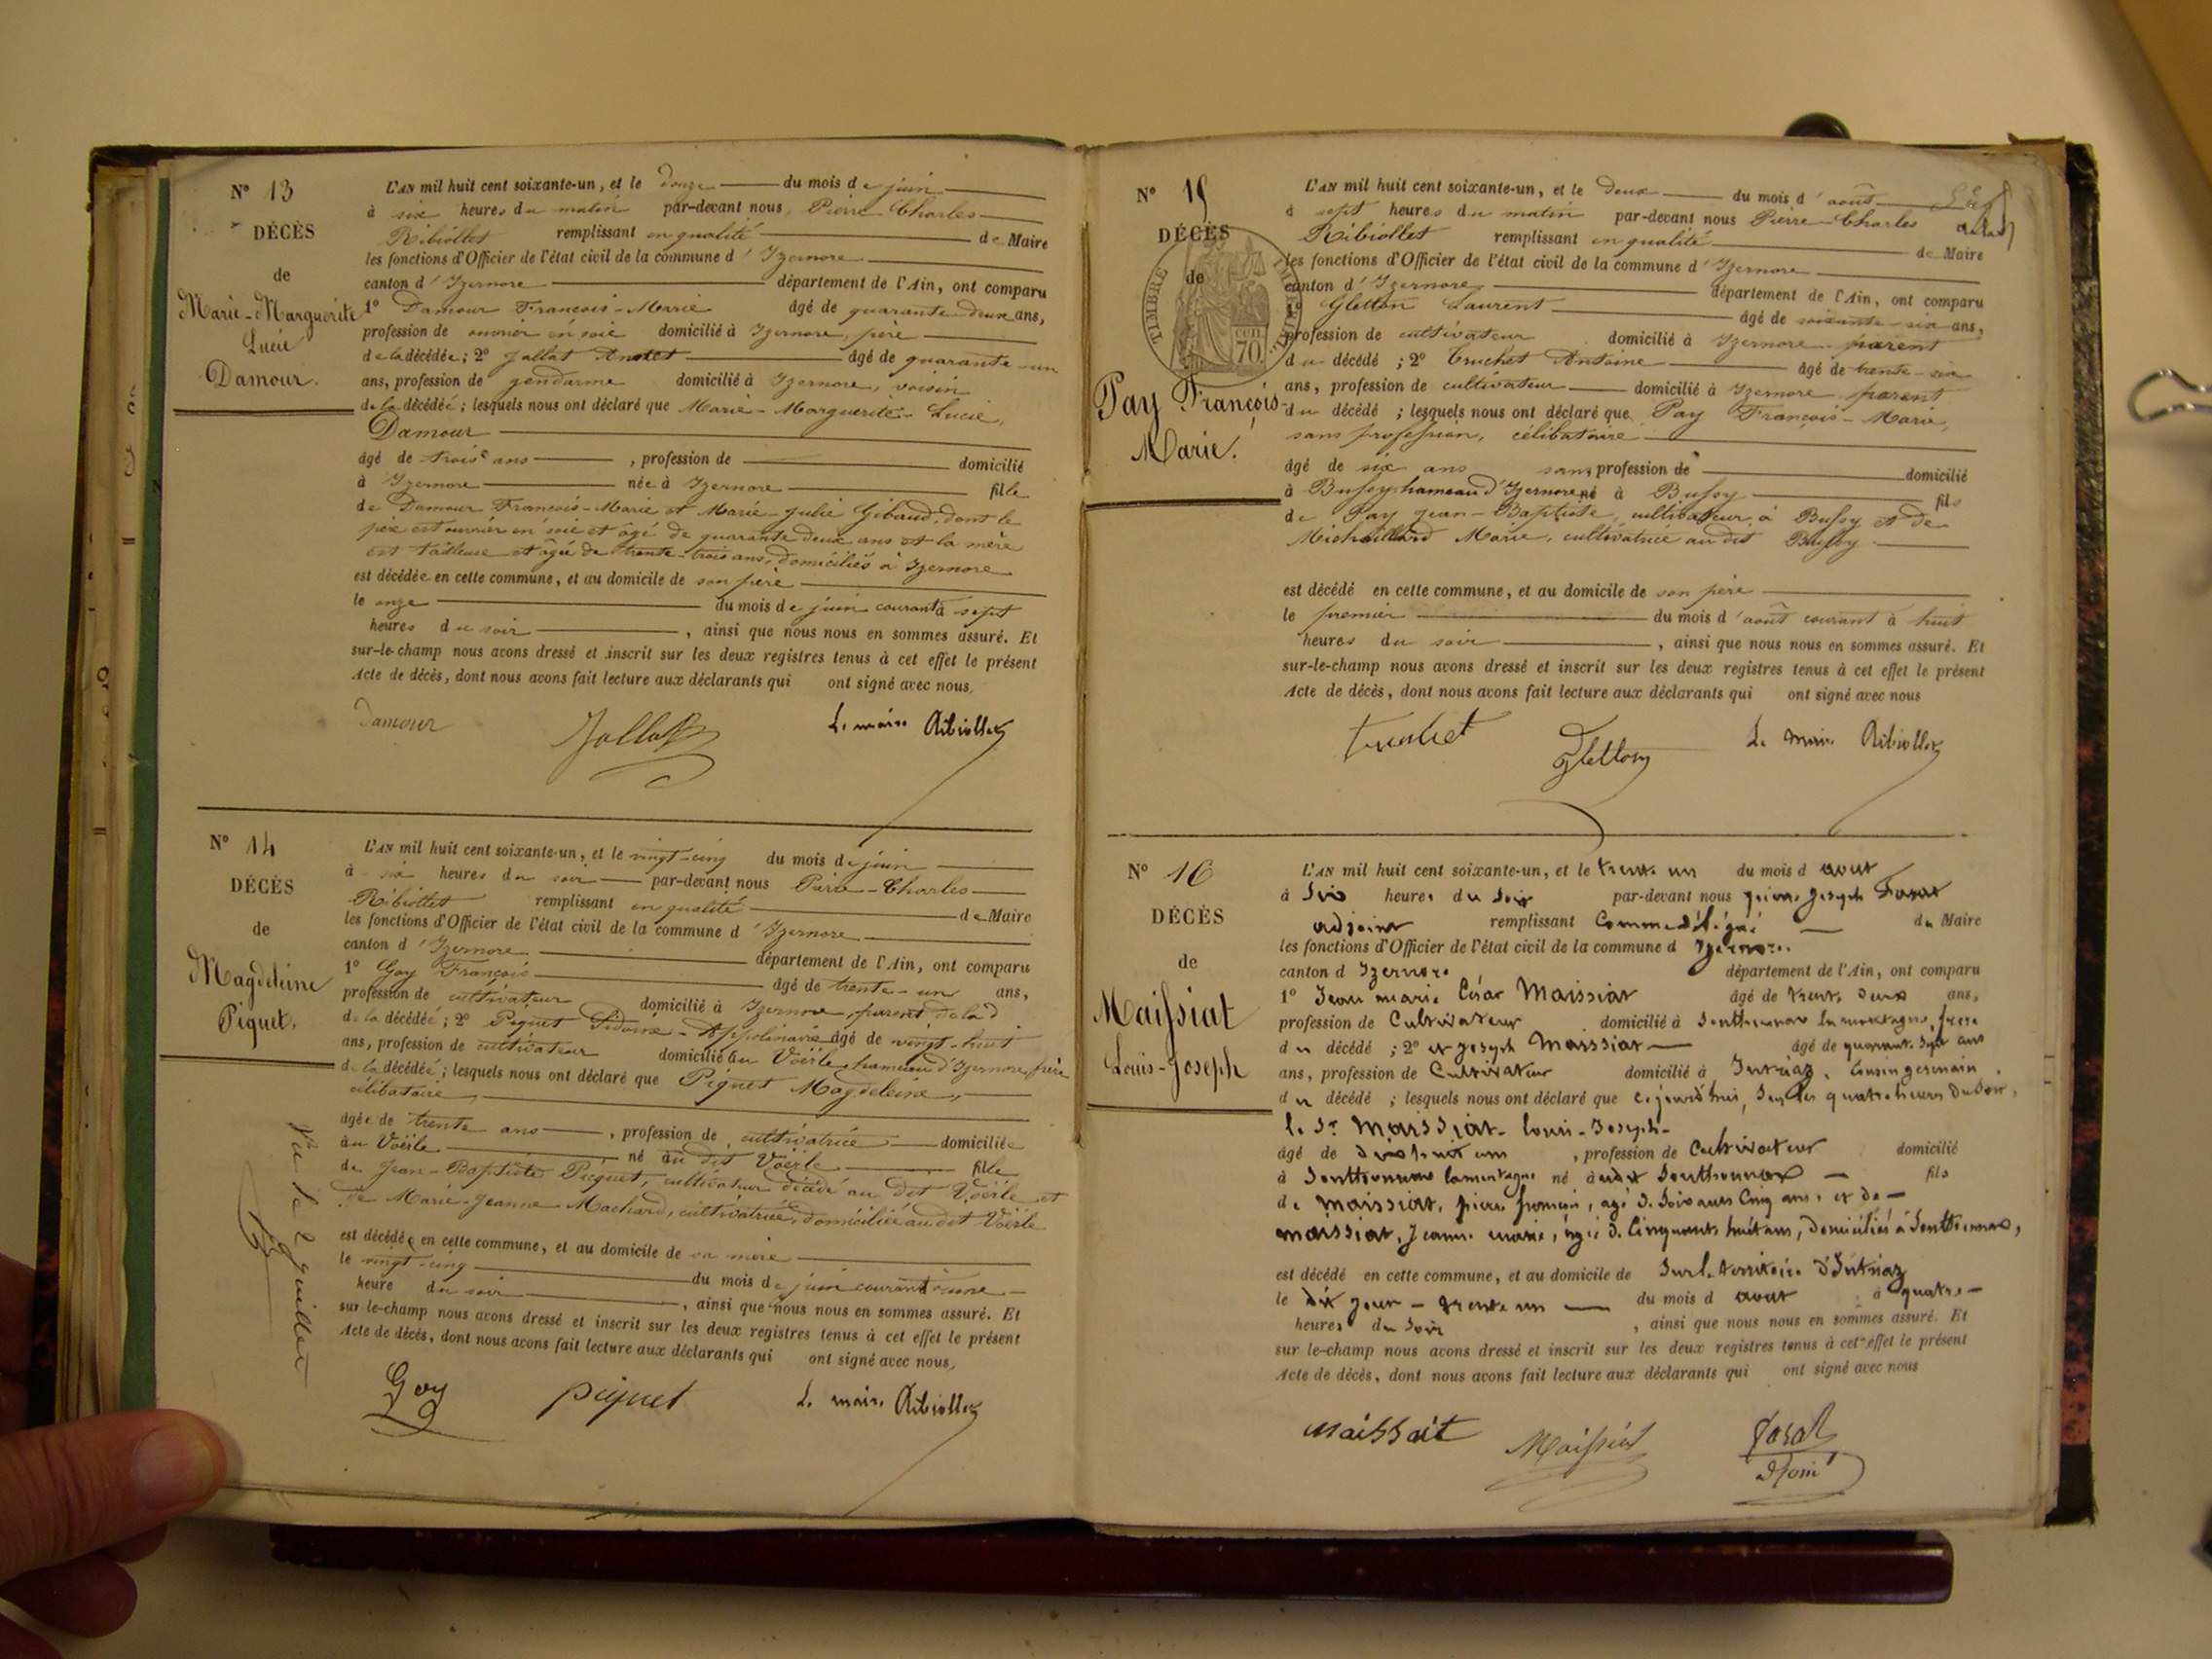 N° 13
DÉCÈS
de
Marie-Marguerite
Lucie
Damour.
L'AN mil huit cent soixante-un, et le douze du mois de juin
à six heures du matin par-devant nous Pierre Charles
Ribiollet remplissant en qualité de Maire
les fonctions d'Officier de l'état civil de la commune d'Izernore
canton d'Izernore département de l'Ain, ont comparu
1° Damour François-Marie âgé de quarante-deux ans,
profession de ouvrier en soie domicilié à Izernore, père
de la décédée; 2° Jallat âgé de quarante-un
ans, profession de gendarme domicilié à Izernore, voisin
de la décédée; lesquels nous ont déclaré que Marie-Marguerite-Lucie,
Damour
âgé de trois ans, profession de domicilié
à Izernore née à Izernore fille
de Damour François-Marie et Marie-Julie Gibaud, dont le
père est ouvrier en soie et âgé de quarante deux ans et la mère
est tailleuse et âgée de trente-trois ans, domiciliés à Izernore
est décédée en cette commune, et au domicile de son père
le onze du mois de juin courant à sept
heures du soir, ainsi que nous nous en sommes assuré. Et
sur-le-champ nous avons dressé et inscrit sur les deux registres tenus à cet effet le présent
Acte de décès, dont nous avons fait lecture aux déclarants qui ont signé avec nous,
Damour Jallat Le maire Ribiollet
N° 14
DÉCÈS
de
Magdeleine
Piquet.
L'AN mil huit cent soixante-un, et le vingt-cinq du mois de juin
à six heures du soir par-devant nous Pierre-Charles
Ribiollet remplissant en qualité de Maire
les fonctions d'Officier de l'état civil de la commune d'Izernore
canton d'Izernore département de l'Ain, ont comparu
1° Goy François âgé de trente-un ans,
profession de cultivateur domicilié à Izernore, parent de la d
de la décédée; 2° Piquet Sidoine-Appolinaire âgé de vingt-huit
ans, profession de cultivateur domicilié au Voërle, hameau d'Izernore, frère
de la décédée; lesquels nous ont déclaré que Piquet Magdeleine,
célibataire,
âgée de trente ans, profession de cultivatrice domiciliée
au Voërle né au dit Voërle fille
de Jean-Baptiste Piquet, cultivateur décédé au dit Voërle et
de Marie-Jeanne Machard, cultivatrice, domiciliée au dit Voërle
est décédée en cette commune, et au domicile de sa mère
le vingt-cinq du mois de juin courant à une
heure du soir, ainsi que nous nous en sommes assuré. Et
sur le-champ nous avons dressé et inscrit sur les deux registres tenus à cet effet le présent
Acte de décès, dont nous avons fait lecture aux déclarants qui ont signé avec nous,
Goy piquet Le maire Ribiollet
N° 15
DÉCÈS
de
Pay François-
Marie.
TIMBRE IMPÉRIAL
cen
70.
L'AN mil huit cent soixante-un, et le deux du mois d'août
à sept heures du matin par-devant nous Pierre-Charles
Ribiollet remplissant en qualité de Maire
les fonctions d'Officier de l'état civil de la commune d'Izernore
canton d'Izernore département de l'Ain, ont comparu
1° Gletton Laurent âgé de soixante-six ans,
profession de cultivateur domicilié à Izernore parent
du décédé; 2° Truchet Antoine âgé de trente-six
ans, profession de cultivateur domicilié à Izernore, parent
du décédé; lesquels nous ont déclaré que Pay François-Marie,
sans profession, célibataire
âgé de six ans sans profession de domicilié
à Bussy, hameau d'Izernore né à Bussy fils
de Pay Jean-Baptiste, cultivateur à Bussy et de
Michaillard Marie, cultivatrice au dit Bussy
est décédé en cette commune, et au domicile de son père
le premier du mois d'août courant à huit
heures du soir, ainsi que nous nous en sommes assuré. Et
sur-le-champ nous avons dressé et inscrit sur les deux registres tenus à cet effet le présent
Acte de décès, dont nous avons fait lecture aux déclarants qui ont signé avec nous
truchet Gletton Le maire Ribiollet
N° 16
DÉCÈS
de
Maissiat
Louis-Joseph
L'AN mil huit cent soixante-un, et le trente un du mois d aout
à six heures du soir par-devant nous pierre joseph
adjoint remplissant comme délégué du Maire
les fonctions d'Officier de l'état civil de la commune d Izernore
canton d Izernore département de l'Ain, ont comparu
1° Jean marie César Maissiat âgé de trente deux ans,
profession de Cultivateur domicilié à Sonthonnax la montagne, frère
du décédé; 2° et joseph Maissiat âgé de quarante sept ans
ans, profession de Cultivateur domicilié à Intriaz, Cousin germain
du décédé; lesquels nous ont déclaré que cejourd'hui, sur les quatre heures du soir,
le Sr Maissiat louis-Joseph-
âgé de dix huit ans, profession de Cultivateur domicilié
à Sonthonnax lamontagne né audit Sonthonnax fils
de Maissiat, pierre françois, agé de soixante Cinq ans et de
maissiat, jeanne marie, agée de Cinquante huit ans, domiciliés à Sonthonnax,
est décédé en cette commune, et au domicile de Sur le territoire d'Intriaz
le dit jour - trente un du mois d aout à quatre
heures du soir, ainsi que nous nous en sommes assuré. Et
sur le-champ nous avons dressé et inscrit sur les deux registres tenus à cet effet le présent
Acte de décès, dont nous avons fait lecture aux déclarants qui ont signé avec nous
maissait Maissiat